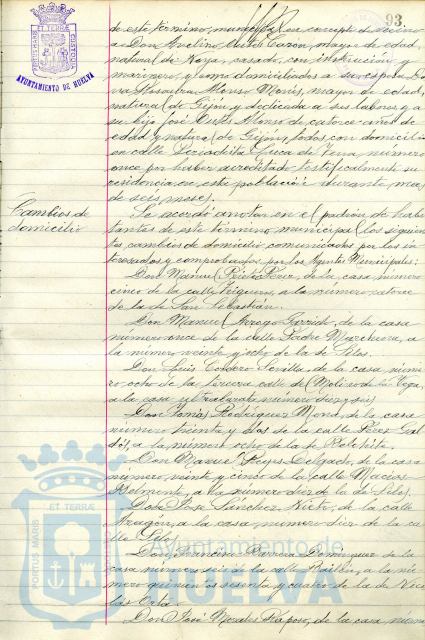 93
PORTUS MARIS ET TERRÆ CUSTODIA
AYUNTAMIENTO DE HUELVA
de este término municipal en concepto de vecino
a Don Avelino Curón, mayor de edad,
natural de, casado, con instrucción y
marinero, y como domiciliados a su esposa Do
Alonso, mayor de edad,
natural de Gijón y dedicada a sus labores y a
su hijo José Alonso de catorce años de
edad y natural de Gijón, todos con domicilio
en calle número
once por haber acreditado testificalmente su
residencia en esta población durante mas
de seis meses.
Cambios de
domicilio
Se acordó anotar en el padrón de habi
tantes de este término municipal los siguien
tes cambios de domicilio comunicados por los in
teresados y comprobados por los Agentes Municipales:
Don Manuel Pérez, de la casa número
cinco de la calle, a la número catorce
de la de San Sebastián.
Don Manuel Garrido, de la casa
número once de la calle Padre Marchena, a
la número veinte y ocho de la de Silos.
Don Luis Cordero Sevilla, de la casa núme
ro ocho de la tercera calle del Molino de la Vega,
a la casa número diez y seis
Rodríguez Mora, de la casa
número treinta y dos de la calle Pérez Gal
dós, a la número ocho de la de Belchite.
Don Manuel Reyes Delgado, de la casa
número veinte y cinco de la calle Macías
Belmonte, a la número diez de la de Silos.
Don José Sánchez, de la calle
Aragón, a la casa número diez de la ca
lle Silos.
Don Francisco Barrera Domínguez de la
casa número seis de la calle Bailén, a la nú
mero quinientos sesenta y cuatro de la de Nico
lás Orta.
Don José Morales Raposo, de la casa núme
PORTUS MARIS ET TERRÆ
Ayuntamiento de
HUELVA